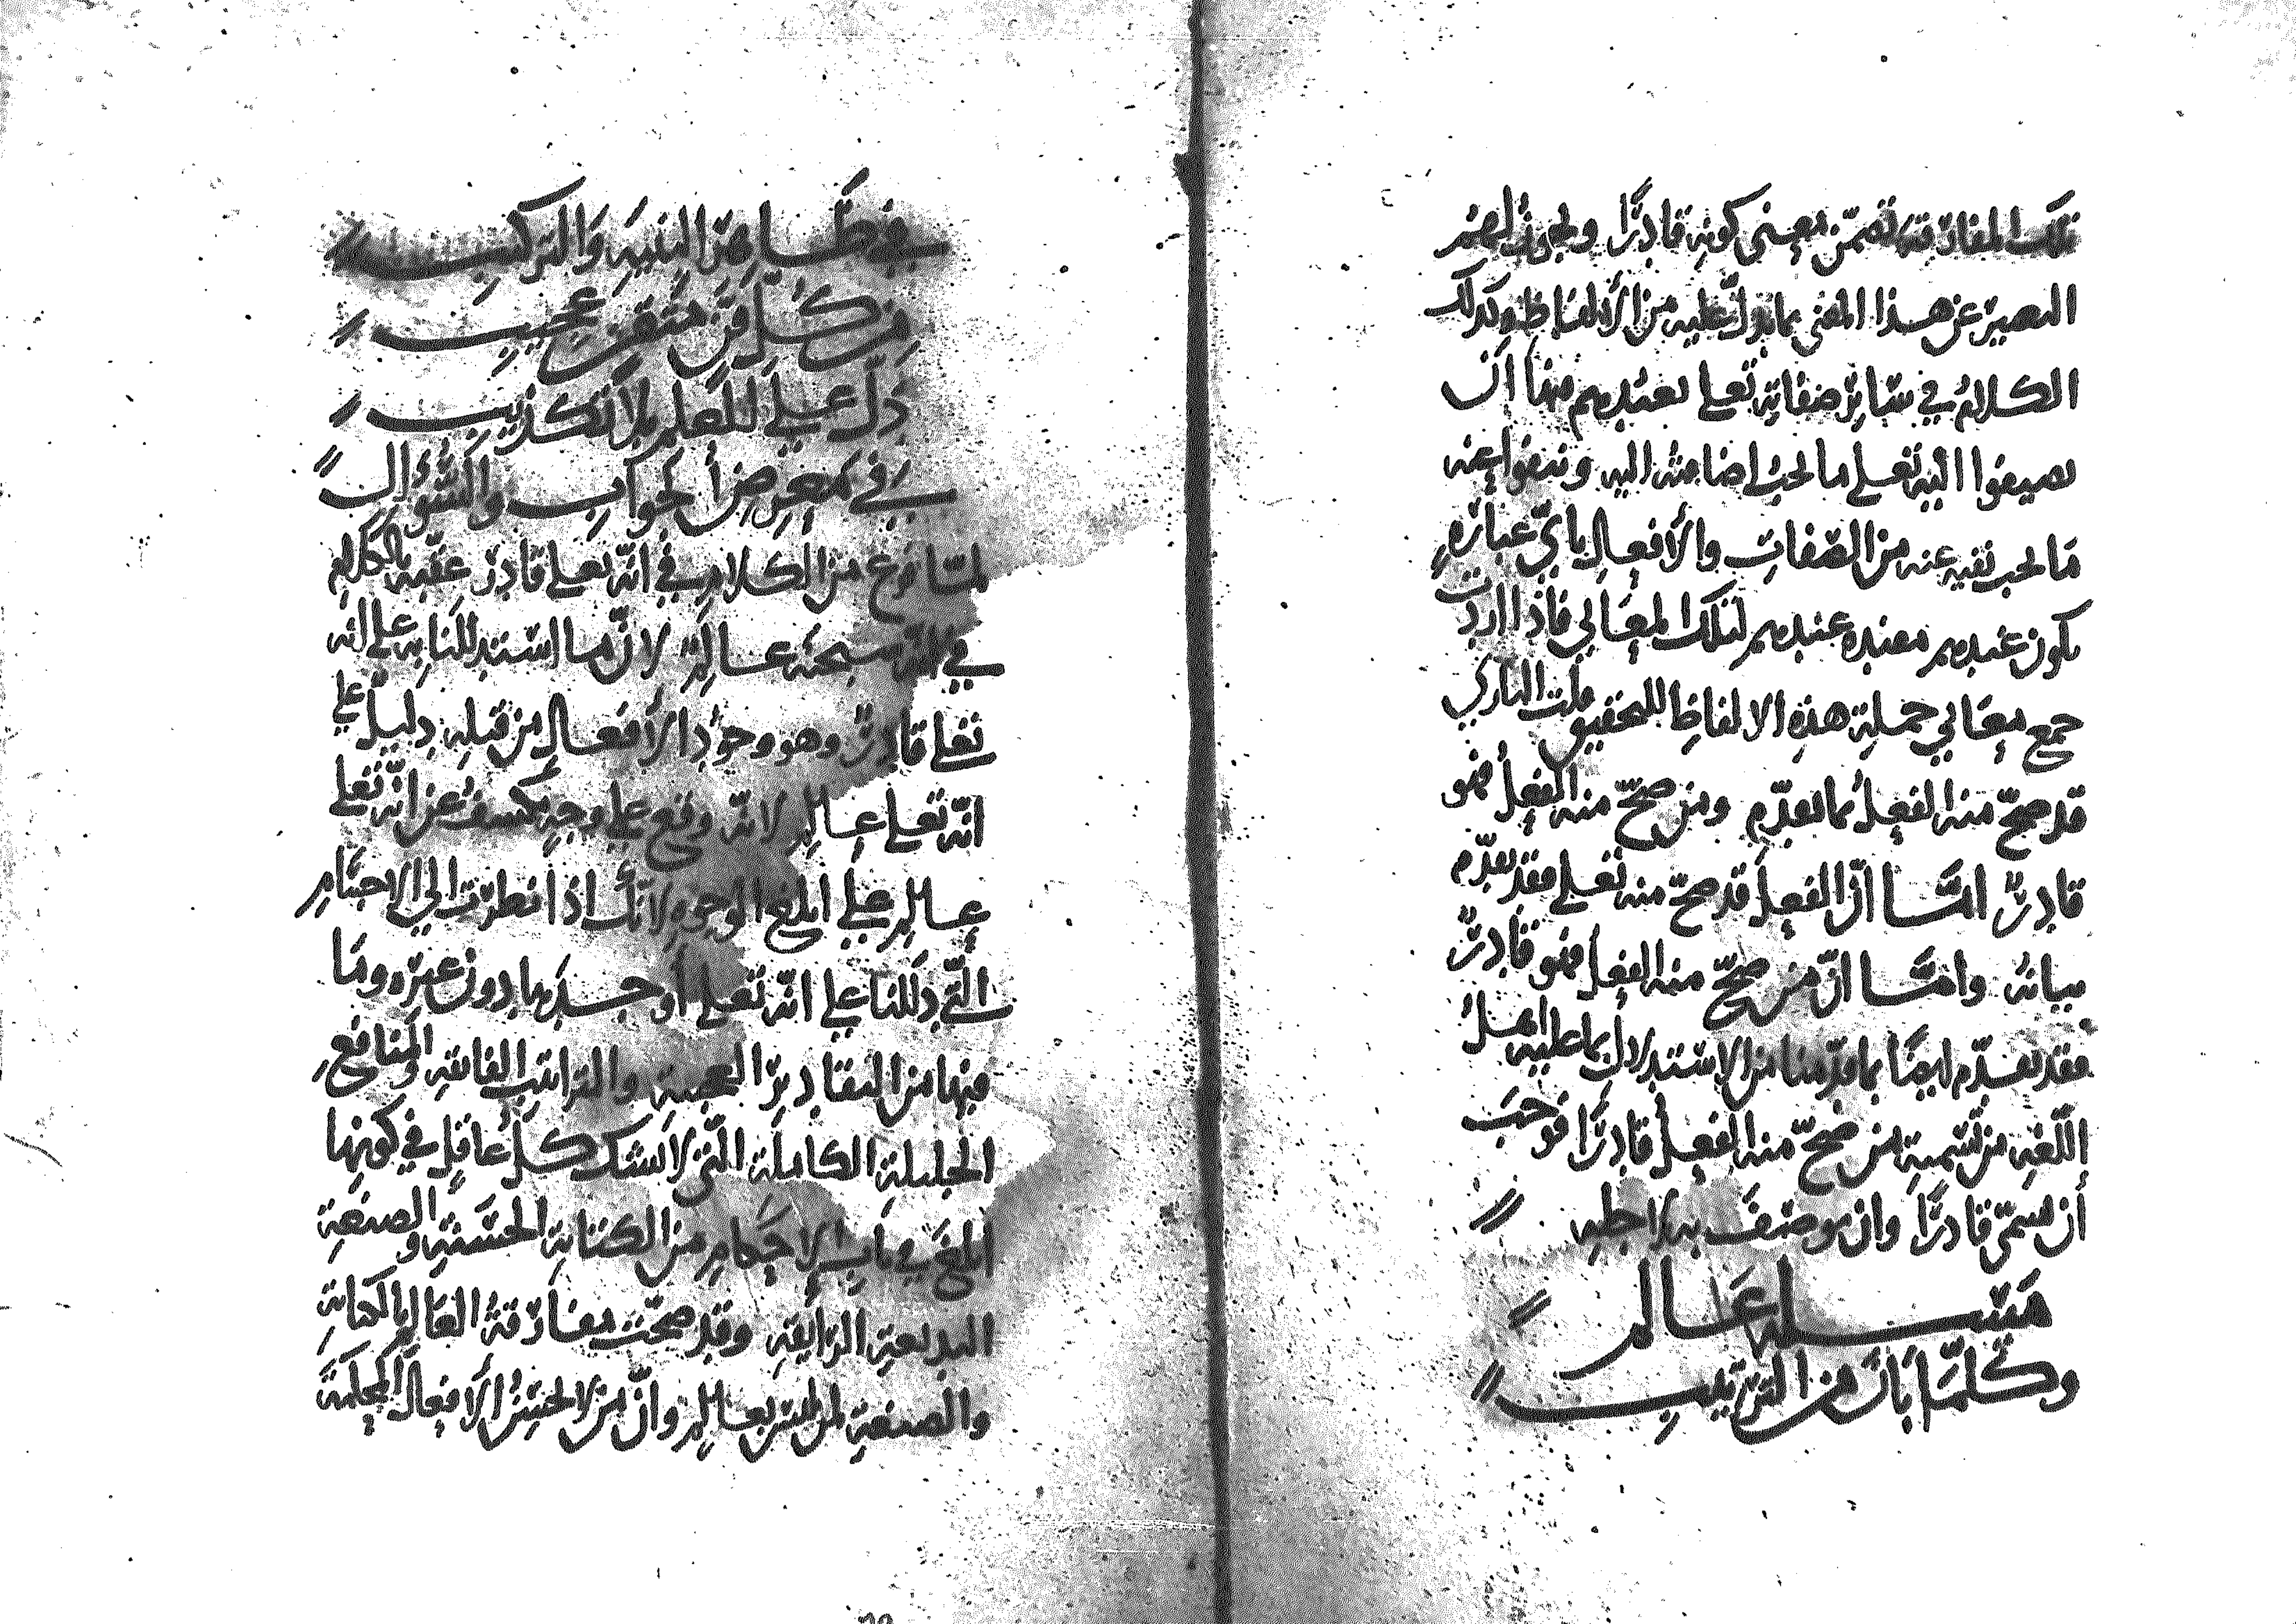 تلك المفارقة تضمن معنى كونه قادرًا ولجوب
التعبير عن هذا المعنى بما يدل عليه من الألفاظ وكذلك
الكلام في سائر صفاته تعلى بعندهم منها ان
يضيفوا اليه تعلى ما يجب اضافته اليه وينفوا عنه
ما يجب نفيه عنه من الصفات والأفعال باي عبارة
يكون عندهم مفيده عندهم لتلك المعاني فاذا اردت
جمع معاني جملة هذه الالفاظ للتحقيق قلت الباري
قد صحّ منه الفعل بما تقدّم ومن صحّ منه الفعل فهو
قادرٌ امّا أنّ الفعل قد صحّ منه تعلى فقد تقدّم
بيانه وامّا أنّ من صحّ منه الفعل فهو قادرٌ
فقد تقدّم ايضًا بما قدّمنا من الاستدلال بما عليه اهل
اللغة من تسمية من صحّ منه الفعل قادرًا فوجب
أن يسمّى قادرًا وان يوصف به لاجله
مسلة عالم
وكلّما بان من الترتيب
في ظاهر البنية والتركيب
من كل فن متقن عجيب
دلّ على العلم بلا تكذيب
في معرض الجواب والسؤال
لمّا فرغ من الكلام في انّه تعلى قادر عقّبه بالكلام
في انّه سبحنه عالم لانّ ما استدللنا به على انه
تعلى قادرٌ وهو وجود الأفعال من قبله دليلٌ على
انّه تعلى عالم لانّه وقع على وجه يكشف عن انّه تعلى
عالم على ابلغ الوجوه لأنّك اذا نظرت الى الاجسام
الّتي دللنا على انّه تعلى أوجدها دون غيره وما
فيها من التقادير العجيبة والتراتيب الفايقة والمنافع
الجليلة الكاملة الّتي لا يشك كل عاقل في كونها
ابلغ في باب الاحكام من الكتابة الحسنة والصنعة
البديعة الرايقة وقد صحّت مفارقة العالم بالكتابة
والصنعة لمن ليس بعالم وانّ من لا يحسن الأفعال المحكمة